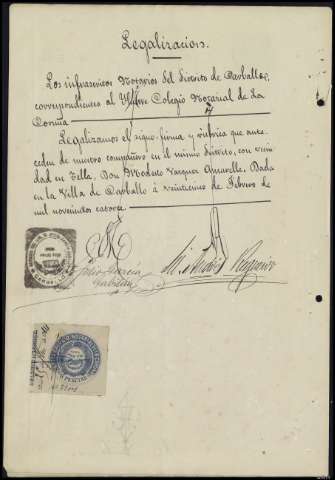 Legalización.
Los infrascritos Notarios del Distrito de Carballo,
correspondientes al Ilustre Colegio Notarial de La
Coruña
Legalizamos el signo, firma y rúbrica que ante-
ceden de nuestro compañero en el mismo Distrito, con vecin-
dad en Zella, Don Modesto Vazquez Dada
en la Villa de Carballo á veintiuno de Febrero de
mil novecientos catorce.
Julio García